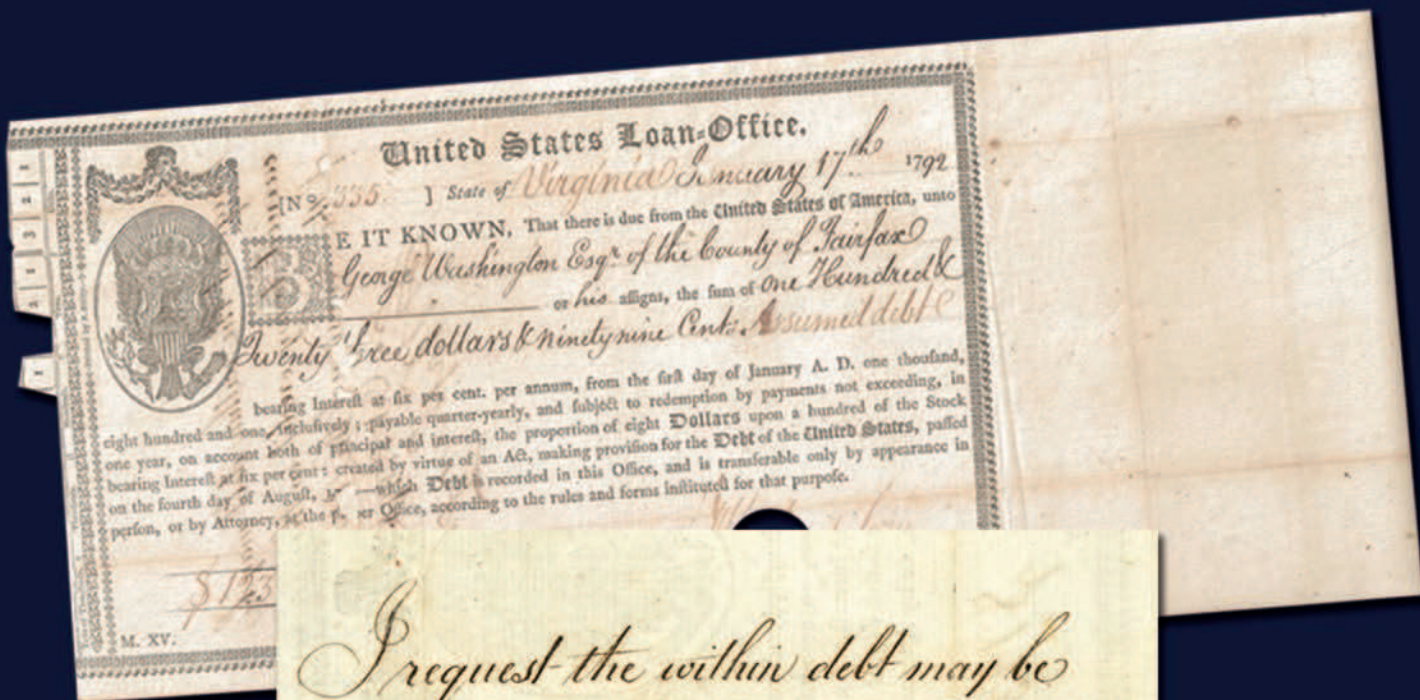 United States Loan=Office.
[No. 335 ] State of Virginia January 17th 1792
BE IT KNOWN, That there is due from the United States of America, unto
George Washington Esqr. of the County of Fairfax
or his assigns, the sum of One Hundred &
Twenty three dollars & ninety nine Cents. Assumed debt
bearing Interest at six per cent. per annum, from the first day of January A. D. one thousand,
eight hundred and one, inclusively; payable quarter-yearly, and subject to redemption by payments not exceeding, in
one year, on account both of principal and interest, the proportion of eight Dollars upon a hundred of the Stock
bearing Interest at six per cent: created by virtue of an Act, making provision for the Debt of the United States, passed
on the fourth day of August, —which Debt is recorded in this Office, and is transferable only by appearance in
person, or by Attorney, at the Office, according to the rules and forms instituted for that purpose.
$123
M. XV.
I request the within debt may be